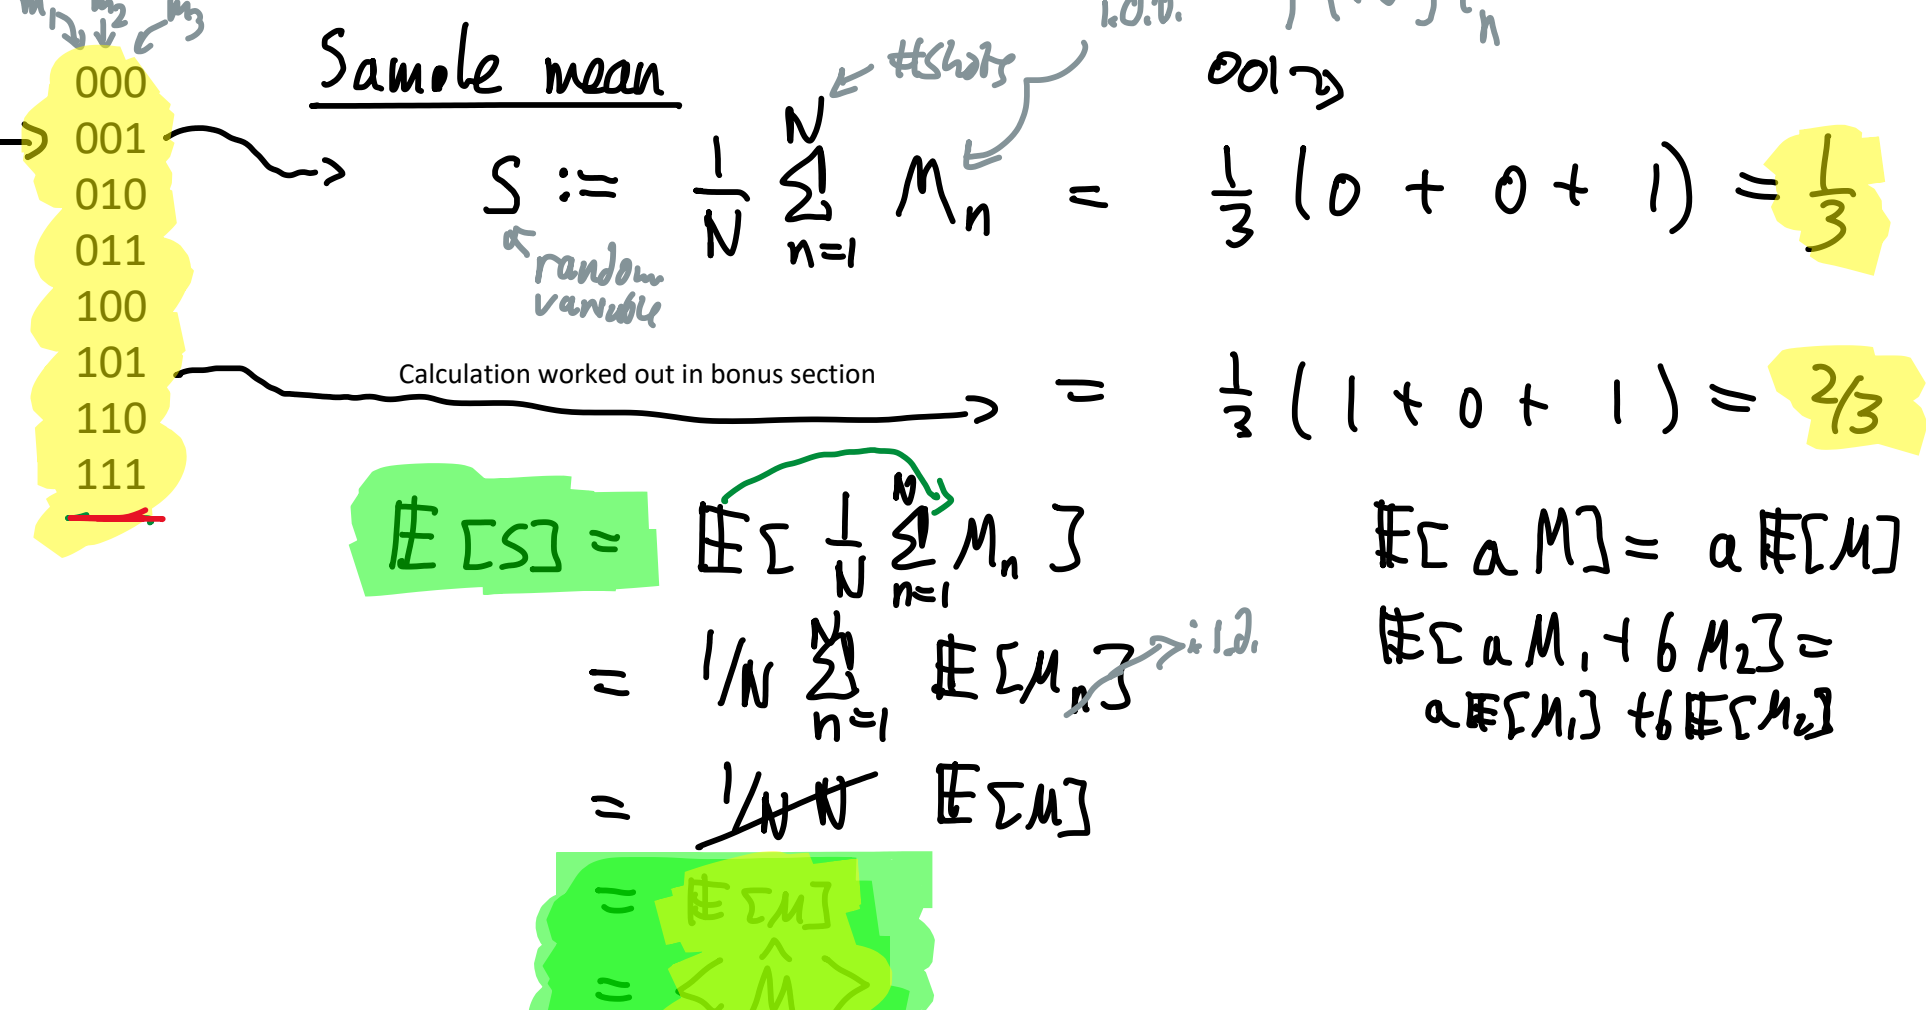 m₁ m₂ m₃
000
001
010
011
100
101
110
111
Sample mean
#shots
i.i.d.
n
001
S := 1/N ∑_{n=1}^{N} Mₙ = 1/3 (0 + 0 + 1) = 1/3
random
variable
Calculation worked out in bonus section
= 1/3 (1 + 0 + 1) = 2/3
𝔼[S] = 𝔼[ 1/N ∑_{n=1}^{N} Mₙ ]
= 1/N ∑_{n=1}^{N} 𝔼[Mₙ] i.i.d.
= 1/N N 𝔼[M]
= 𝔼[M]
= <M̂>
𝔼[aM] = a𝔼[M]
𝔼[aM₁ + bM₂] =
a𝔼[M₁] + b𝔼[M₂]